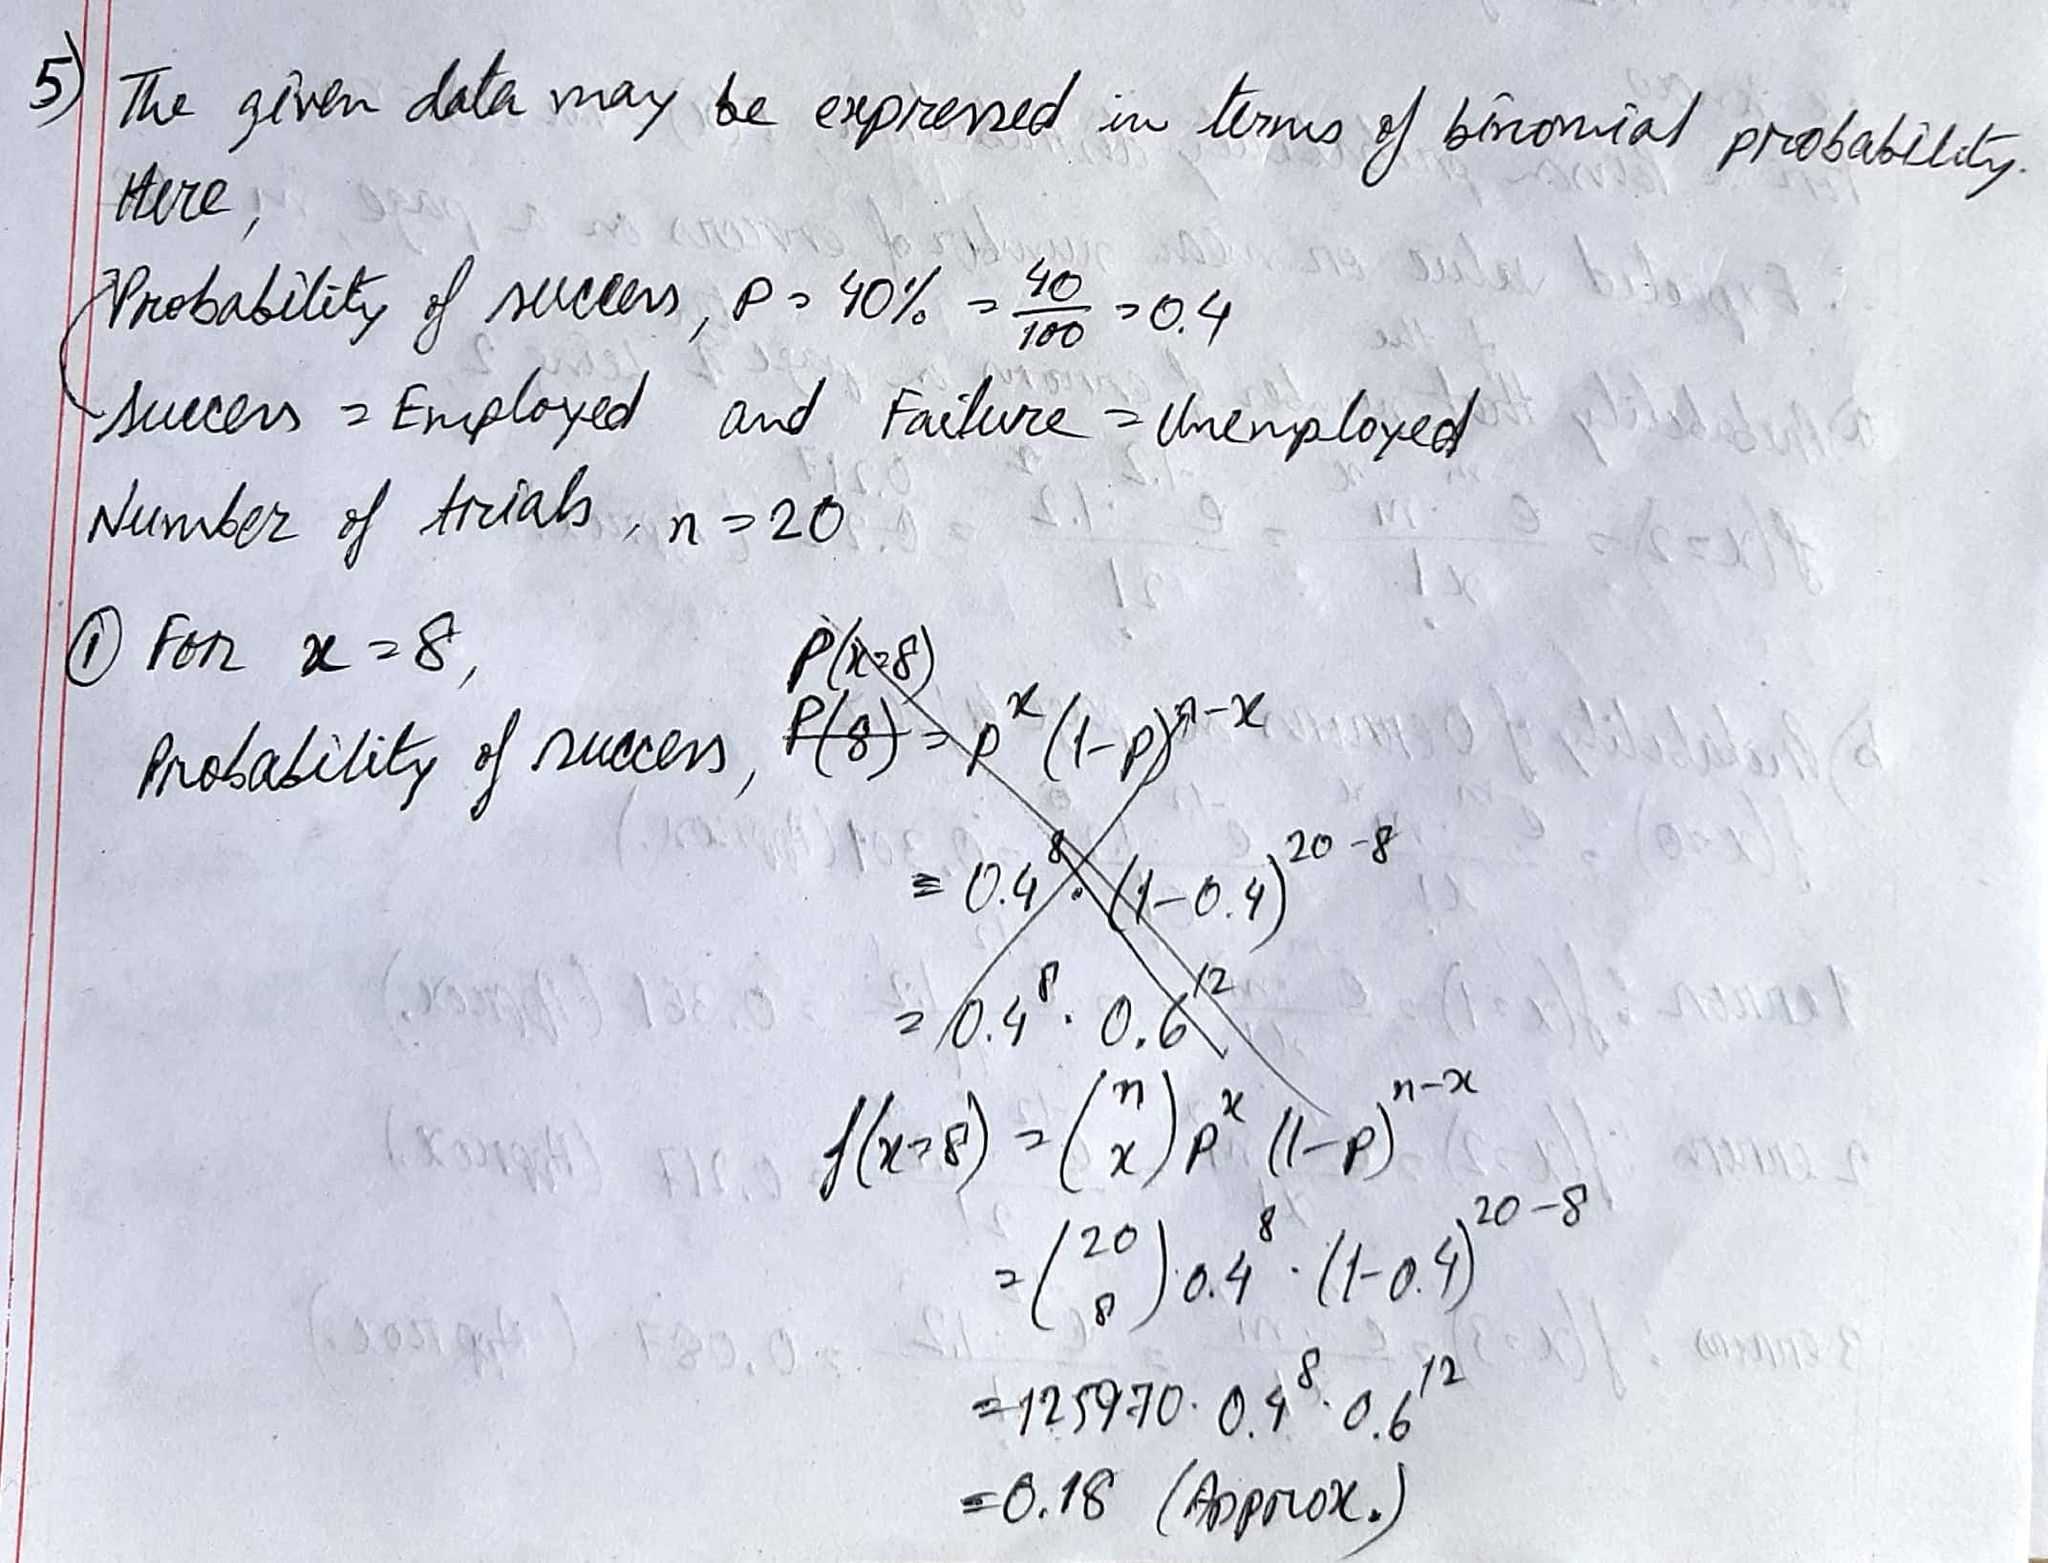 5) The given data may be expressed in terms of binomial probability.
Here,
Probability of success, P = 40% = 40/100 = 0.4
Success = Employed and Failure = Unemployed
Number of trials, n = 20
① For x = 8,
P(x=8)
Probability of success, P(8) = p^x (1-p)^n-x
= 0.4^8 · (1-0.4)^20-8
= 0.4^8 · 0.6^12
f(x=8) = (n x) p^x (1-p)^n-x
= (20 8) · 0.4^8 · (1-0.4)^20-8
= 125970 · 0.4^8 · 0.6^12
= 0.18 (Approx.)